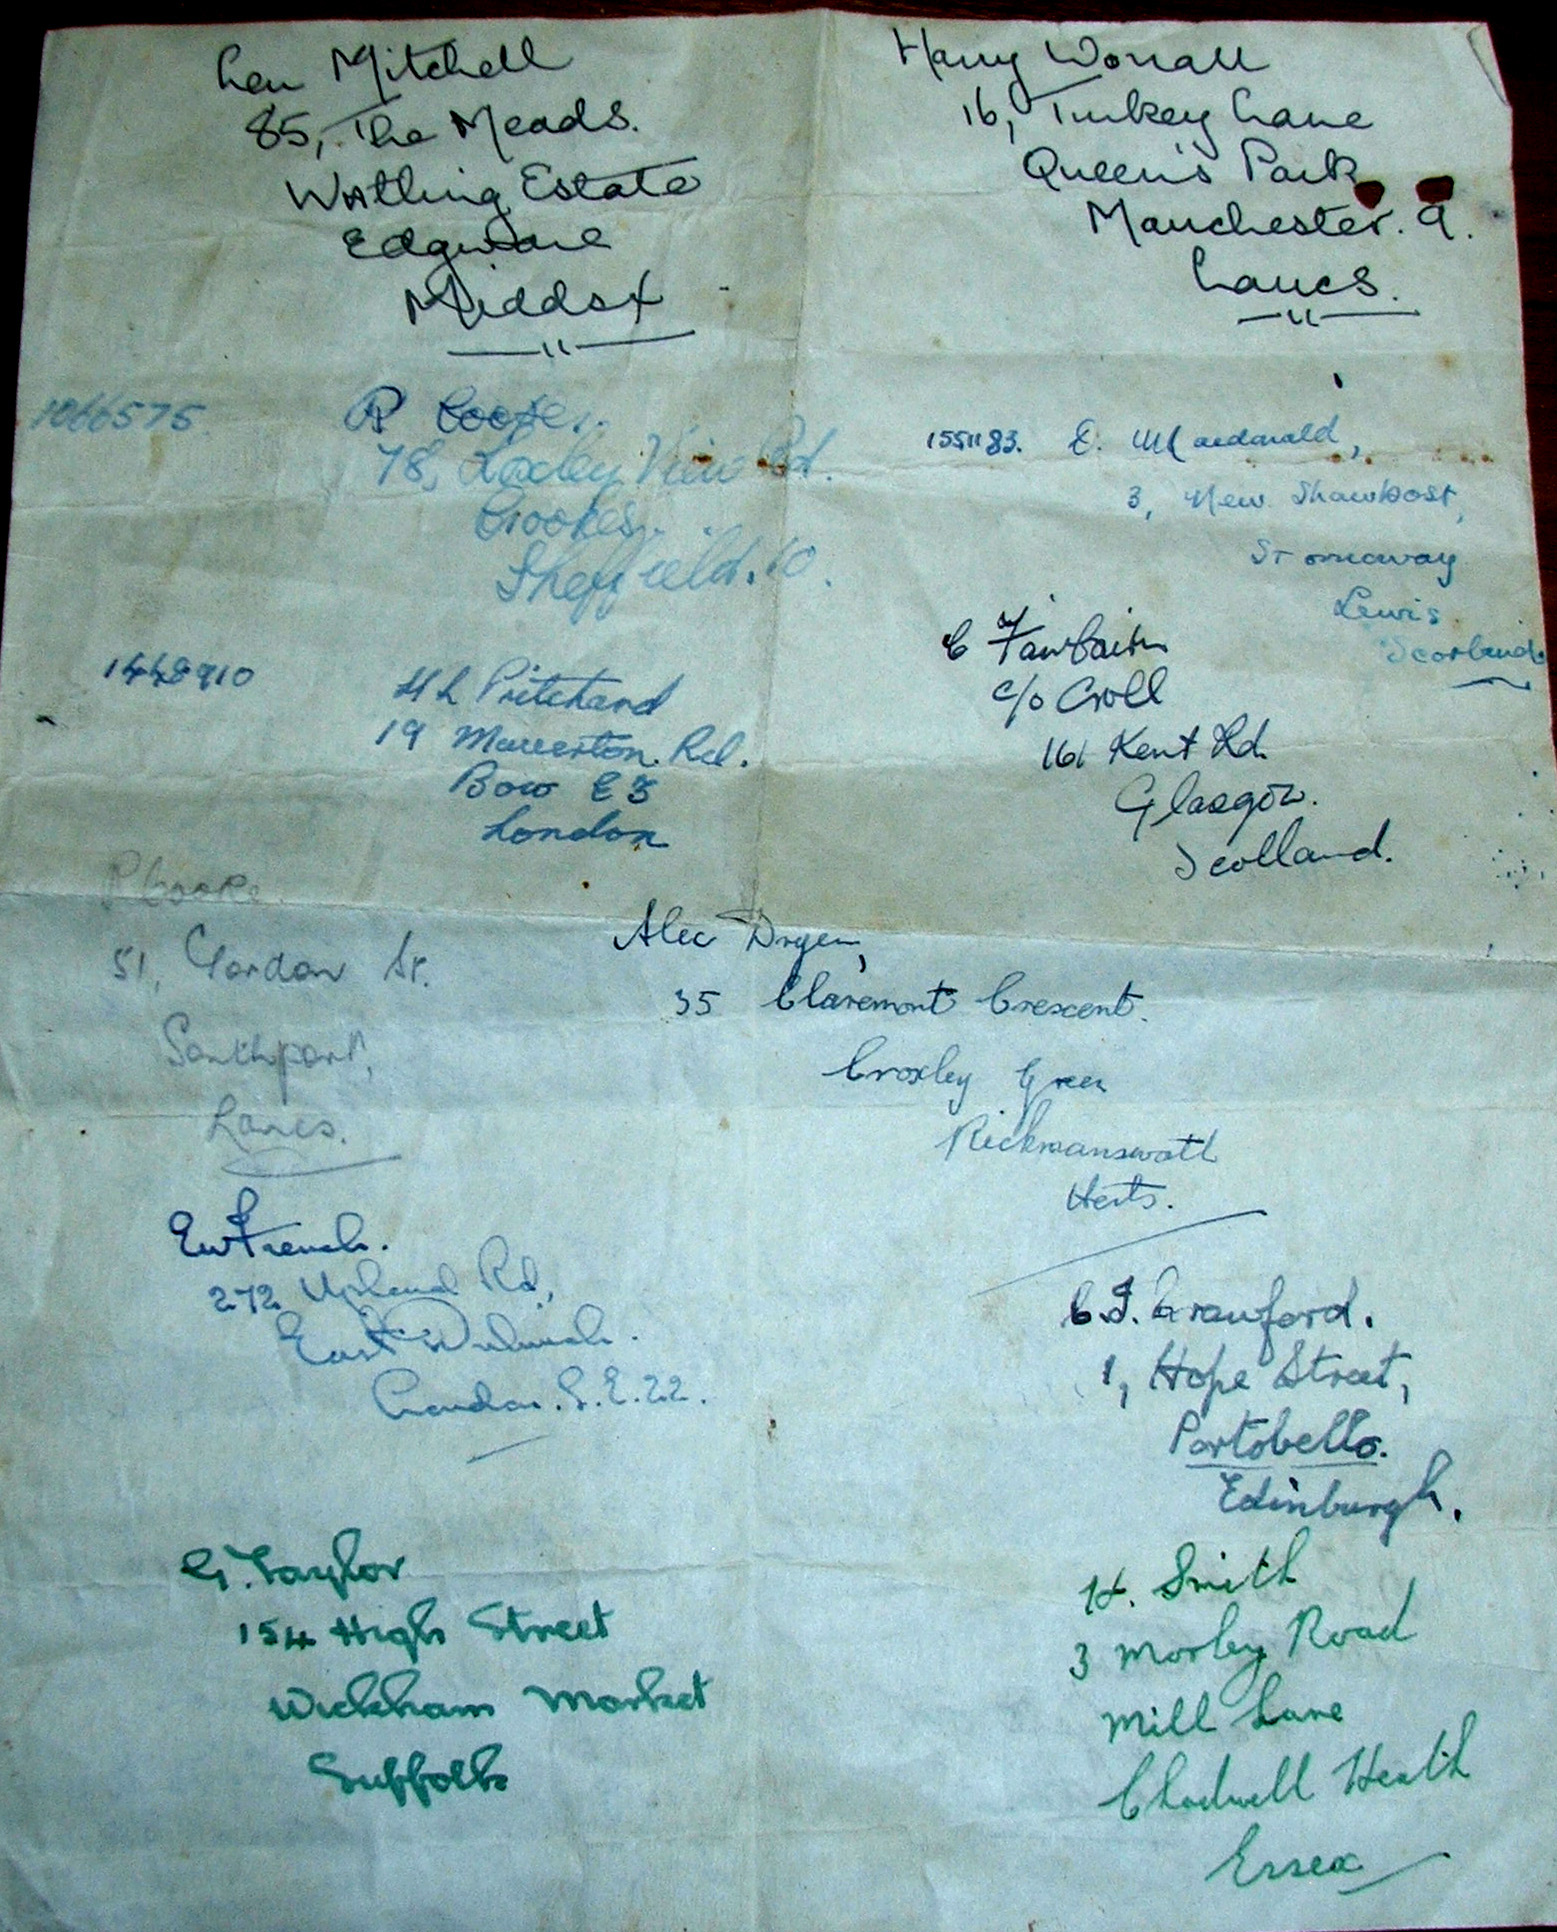 Len Mitchell
85, The Meads.
Watling Estate
Edgware
Middsx
Harry Worrall
16, Turkey Lane
Queen's Park
Manchester. 9.
Lancs.
1066575. R Cooke.
78, Loxley View Rd.
Crookes.
Sheffield. 10.
1551183. D. Macdonald,
3, New Shawbost,
Stornoway
Lewis
Scotland
1448910 H L Pritchard
19 Rd.
Bow E3
London
C Fairbairn
c/o Croll
161 Kent Rd.
Glasgow.
Scotland.
P Cooke
51, Gordon St.
Southport,
Lancs.
Alec
35 Claremont Crescent.
Croxley Green
Rickmansworth
Herts.
EW French.
272 Upland Rd,
East Dulwich.
London. S.E.22.
C.J. Crawford.
1, Hope Street,
Portobello.
Edinburgh.
G. Taylor
154 High Street
Wickham Market
Suffolk
H. Smith
3 Morley Road
Mill Lane
Chadwell Heath
Essex